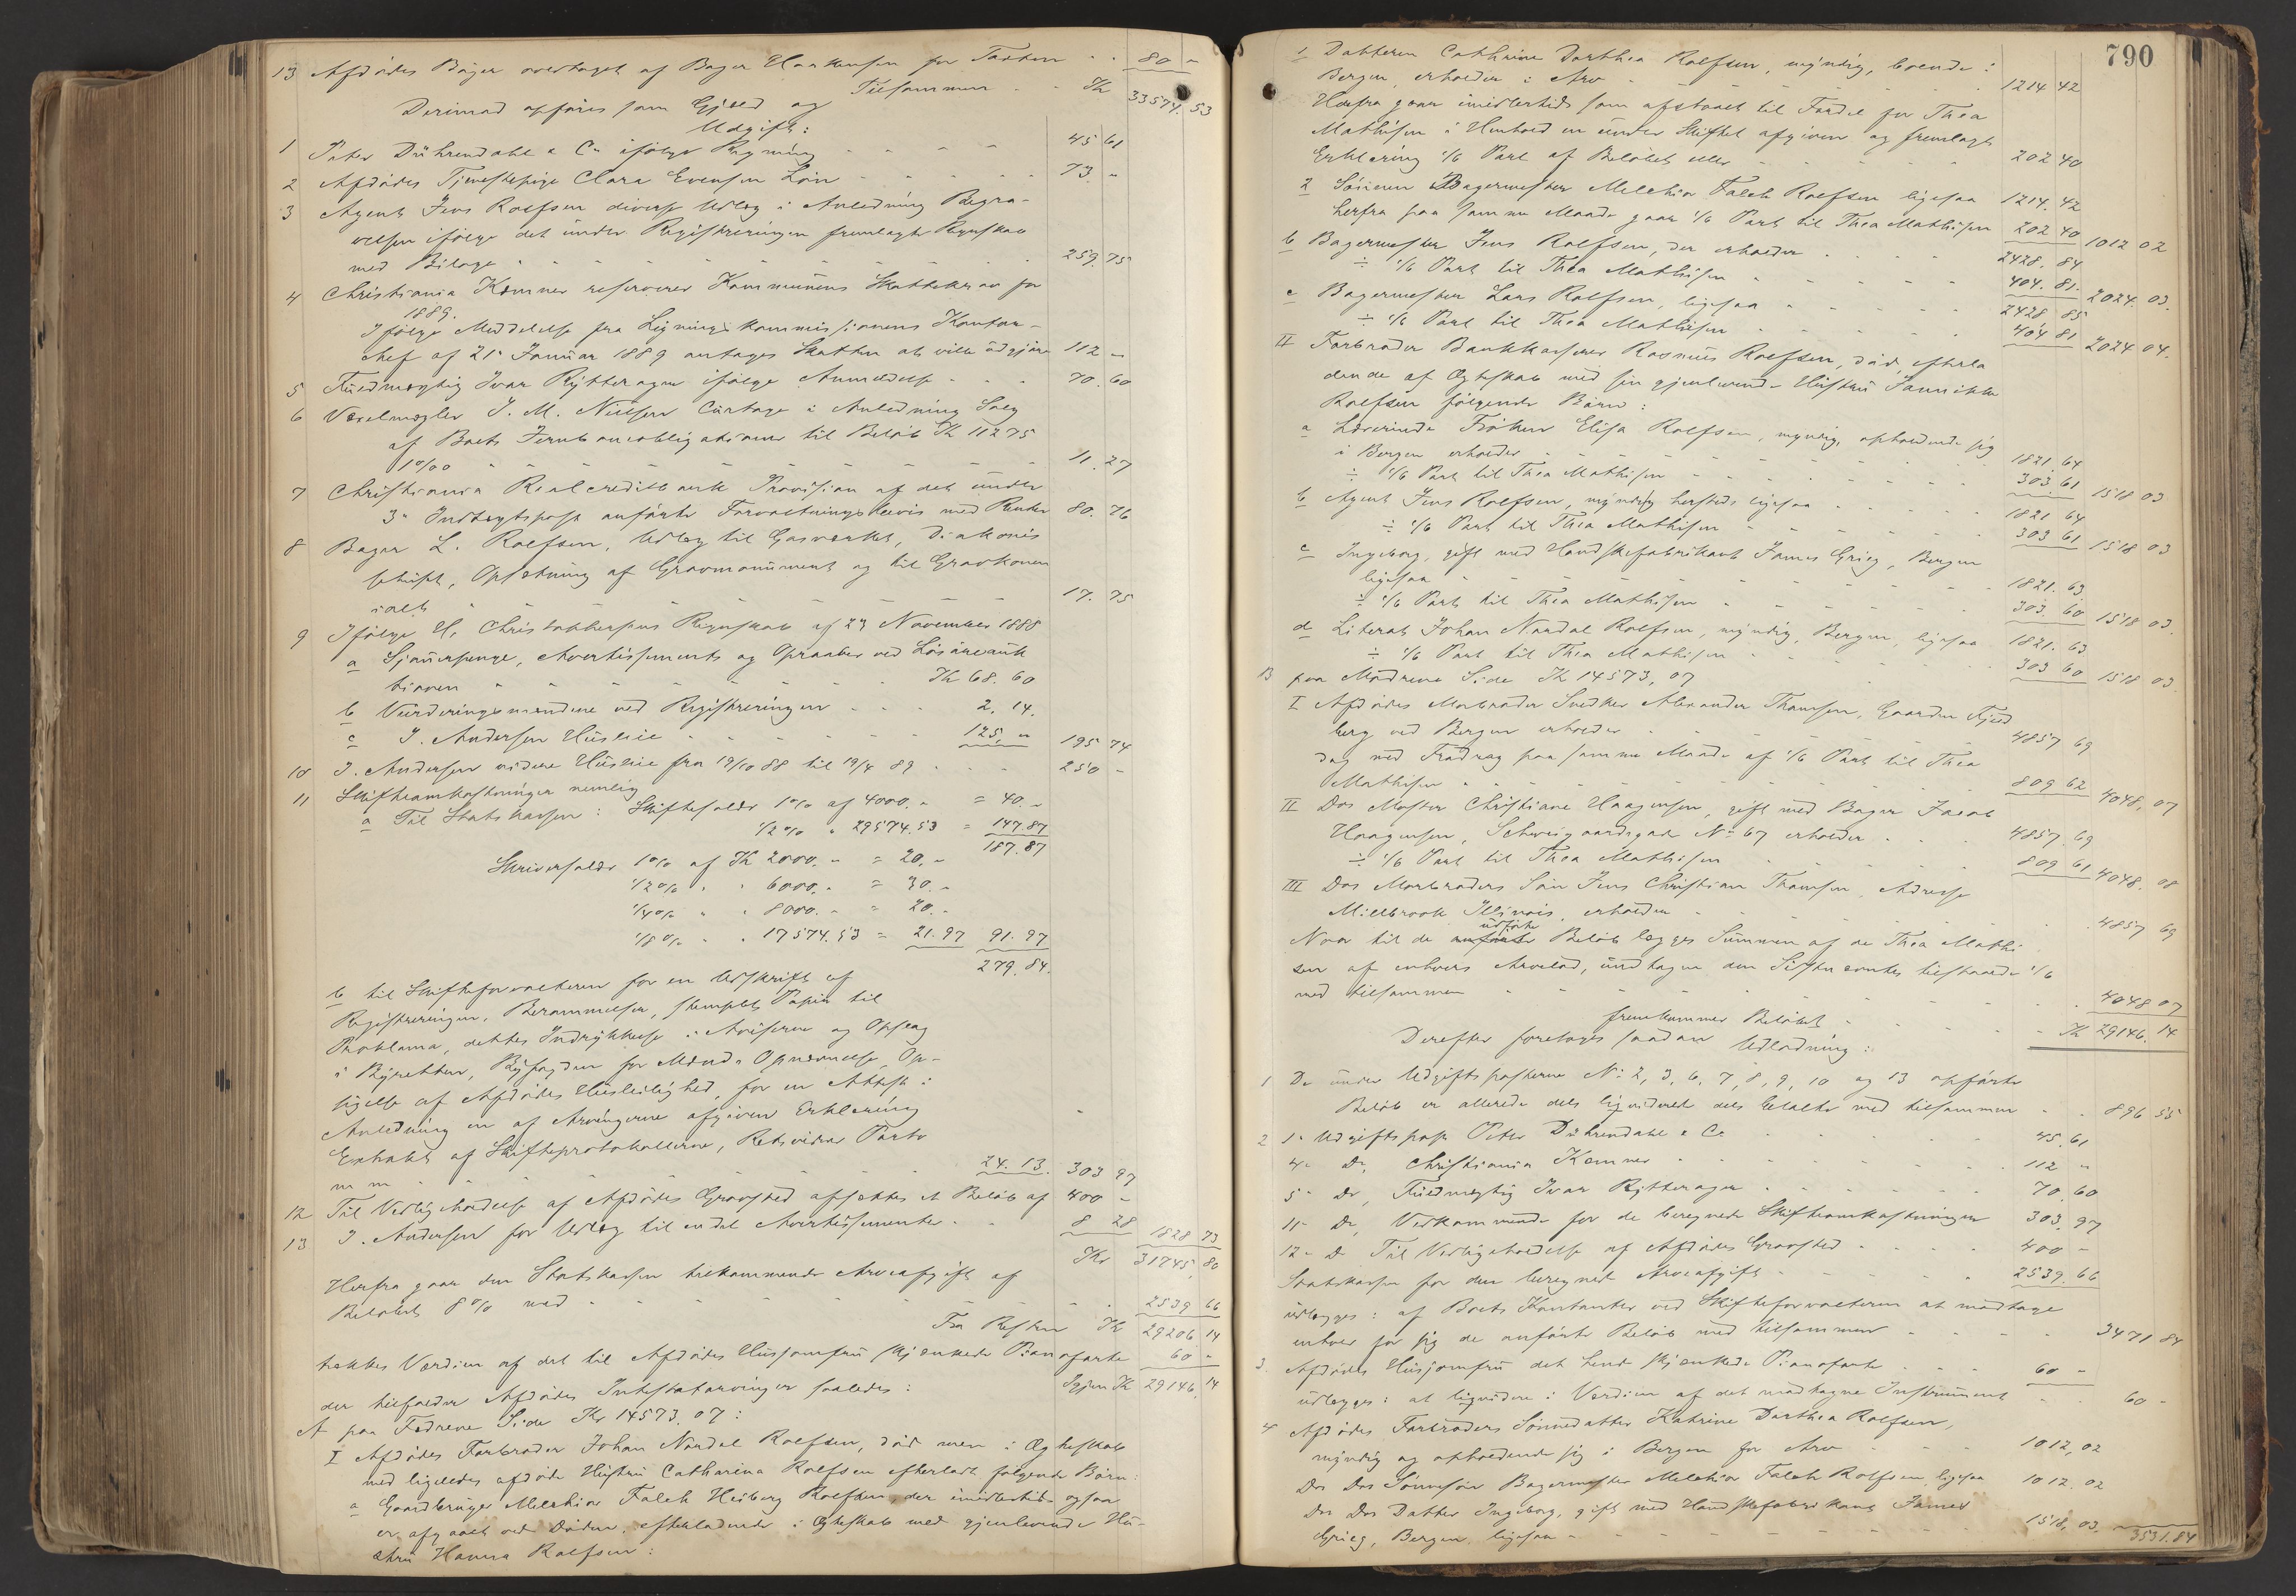 13 Afdödes Bøger overtaget af Bager Haakensen for Taxten - - 80 -
Tilsammen - - Kr 33574.53
Derimod opføres som Gjæld og
Udgift:
1 Peter Dührendahl & Co ifølge Regning - - - - 45 61
2 Afdödes Tjenestepige Clara Evensen Løn - - - - 73 -
3 Agent Jens Rolfsen diverse Udlæg i Anledning Begra-
velsen ifølge det under Registreringen fremlagte Regnskab
med Bilage - - - - 259.75
4 Christiania Kæmner reserverer Kommunens Skattekrav for
1889.
Ifølge Meddelelse fra Ligningskommissionens Kontor-
chef af 21 Januar 1889 antages Skatten at ville udgjøre 112 -
5 Fuldmægtig Ivar Rytterager ifølge Anmeldelse - - - 70.60
6 Vexelmægler J. M. Nielsen Curtage i Anledning Salg
af Boets Jernbaneobligationer til Beløb Kr 11275
1 %00 - - - - 11.27
7 Christiania Realcreditbank Provision af det under
3 Indtægtspost anførte Forvaltningsbevis med Renter 80.76
8 Bager L. Rolfsen, Udlæg til Gasværket, Diakonis
sehuset, Opsætning af Gravmonument og til Gravkonen
ialt - - - - 17.75
9 Ifølge H. Christophersens Regnskab af 23 November 1888
a Sjauerpenge, Avertissements og Opraaber ved Løsøreauk
tionen - - - - Kr 68.60
b Vurderingsmændene ved Registreringen - - - 2.14.
c J. Andersen Husleie - - - - 125 - 195 74
10 J. Andersen videre Husleie fra 19/10 88 til 19/4 89 - - - 250 -
11 Skifteomkostninger nemlig
a Til Statskassen: Skiftefaldt 1 % af 4000. - = 40. -
1/2 % " 29574.53 = 147.87
187.87
Skriverfaldt 1 % af Kr 2000. - = 20. -
1/2 % " " 6000. - = 30. -
1/4 % " " 8000. - = 20. -
1/8 % " " 17574.53 = 21.97 91.97
279.84.
b til Skifteforvalteren for en Udskrift af
Registreringen, Berammelsen, stemplet Papir til
Proklama, dettes Indrykkelse i Aviserne og Opslag
i Byretten, Byfogden for Mænds Opnævnelse, Op-
sigelse af Afdödes Husleilighed, for en Attest i
Anledning en af Arvingerne afgiven Erklæring
Extrakt af Skifteprotokollerne, Porto
m m - - - - 24.13. 303 97
12 Til Vedligeholdelse af Afdödes Gravsted afsættes et Beløb af 400 -
13 J. Andersen for Udlæg til endel Avertissementer - - 8 28 1828 73
Kr 31745 80
Herfra gaar den Statskassen tilkommende Arveafgift af
Beløbet 8 % med - - - - 2539 66
Fra Resten Kr 29206 14
trækkes Værdien af det til Afdödes Husjomfru skjænkede Pianoforte 60 -
Igjen Kr 29146.14
der tilfalder Afdödes Intestatarvinger saaledes:
A paa Fædrene Side Kr 14573.07:
I Afdödes Farbroder Johan Nordal Rolfsen, død men i Ægteskab
med ligeledes afdøde Hustru Catharina Rolfsen efterladt følgende Børn:
a Gaardbruger Melchior Falch Heiberg Rolfsen, der imidlertid ogsaa
er afgaaet ved Døden, efterladende i Ægteskab med gjenlevende Hu-
stru Hanna Rolfsen:
790
1 Datteren Cathrine Dorthea Rolfsen, myndig, boende i
Bergen, erholder i Arv - - - - 1214 42
Herfra gaar imidlertid som afstaaet til Fordel for Thea
Mathisen i Henhold en under Skiftet afgiven og fremlagt
Erklæring 1/6 Part af Beløbet eller - - - 202 40
2 Sønnen Bagermester Melchior Falch Rolfsen ligesaa 1214.42
herfra paa samme Maade gaar 1/6 Part til Thea Mathisen 202 40 1012 02
b Bagermester Jens Rolfsen, der erholder - - - - 2428.84
÷ 1/6 Part til Thea Mathisen - - - - 404.81. 2024.03.
c Bagermester Lars Rolfsen, ligesaa - - - - 2428 85
÷ 1/6 Part til Thea Mathisen - - - - 404 81 2024 04.
II Farbroder Bankkasserer Rasmus Rolfsen, død, efterla
dende af Ægteskab med sin gjenlevende Hustru Jannikke
Rolfsen følgende Børn:
a Lærerinde Frøken Elisa Rolfsen, myndig, opholdende sig
i Bergen erholder - - - - 1821.64
÷ 1/6 Part til Thea Mathisen - - - - 303.61 1518 03
b Agent Jens Rolfsen, myndig hersteds ligesaa - - - 1821 64
÷ 1/6 Part til Thea Mathisen - - - - 303 61 1518 03
c Ingeborg, gift med Handskefabrikant James Grieg, Bergen
ligesaa - - - - 1821.63
÷ 1/6 Part til Thea Mathisen - - - - 303.60 1518 03.
d Literat Johan Nordal Rolfsen, myndig, Bergen, ligesaa 1821.63
÷ 1/6 Part til Thea Mathisen - - - - 303 60 1518 03.
B paa Mødrene Side Kr 14573,07
I Afdödes Morbroder Snedker Alexander Thomsen, Gaarden Fjeld
berg ved Bergen erholder - - - - 4857 69
dog ved Fradrag paa samme Maade af 1/6 Part til Thea
Mathisen - - - - 809 62 4048,07
II Dos Moster Christiane Haagensen, gift med Bager Jacob
Haagensen, Schweigaardsgade No 67 erholder - - 4857.69
÷ 1/6 Part til Thea Mathisen - - - - 809 61 4048.08
III Dos Morbroders Søn Jens Christian Thomsen, Adresse
Millbrook Illinois, erholder - - - - 4857 69
udførte
Naar til de anførte Beløb lægges Summen af de Thea Mathi
sen af enhvers Arvelod, undtagen den Sidstnævntes tilstaaede 1/6
med tilsammen - - - - 4048 07
fremkommer Beløbet - - - - Kr 29146.14
Derefter foretages saadan Udlodning:
1 De under Udgiftsposterne No 2, 3, 6, 7, 8, 9, 10 og 13 opførte
Beløb er allerede dels ligvideret dels betalte med tilsammen - - 896 55
2 1 Udgiftspost Peter Dührendahl & Co - - - - 45.61
4 Do, Christiania Kæmner - - - - 112 "
5 Do, Fuldmægtig Ivar Rytterager - - - - 70.60
11 Do, Vedkommende for de beregnede Skifteomkostninger 303.97
12 Do Til Vedligeholdelse af Afdödes Gravsted - - - - 400 -
Statskassen for den beregnede Arveafgift - - - - 2539.66
udlægges: af Boets Kontanter ved Skifteforvalteren at modtage
enhver for sig de anførte Beløb med tilsammen - - - - 3471 84
3. Afdödes Husjomfru det hende skjænkede Pianoforte - - - 60 -
udlægges: at ligvidere i Værdien af det modtagne Instrument - - 60 -
4 Afdödes Farbroders Sønnedatter Katrine Dorthea Rolfsen,
myndig og opholdende sig i Bergen for Arv - - - - 1012,02
Dos Dos Sønnesøn Bagermester Melchior Falch Rolfsen, ligesaa 1012.02
Dos Dos Datter Ingeborg, gift med Handskefabrikant James
Grieg, Bergen, ligesaa - - - - 1518,03. 3531.84